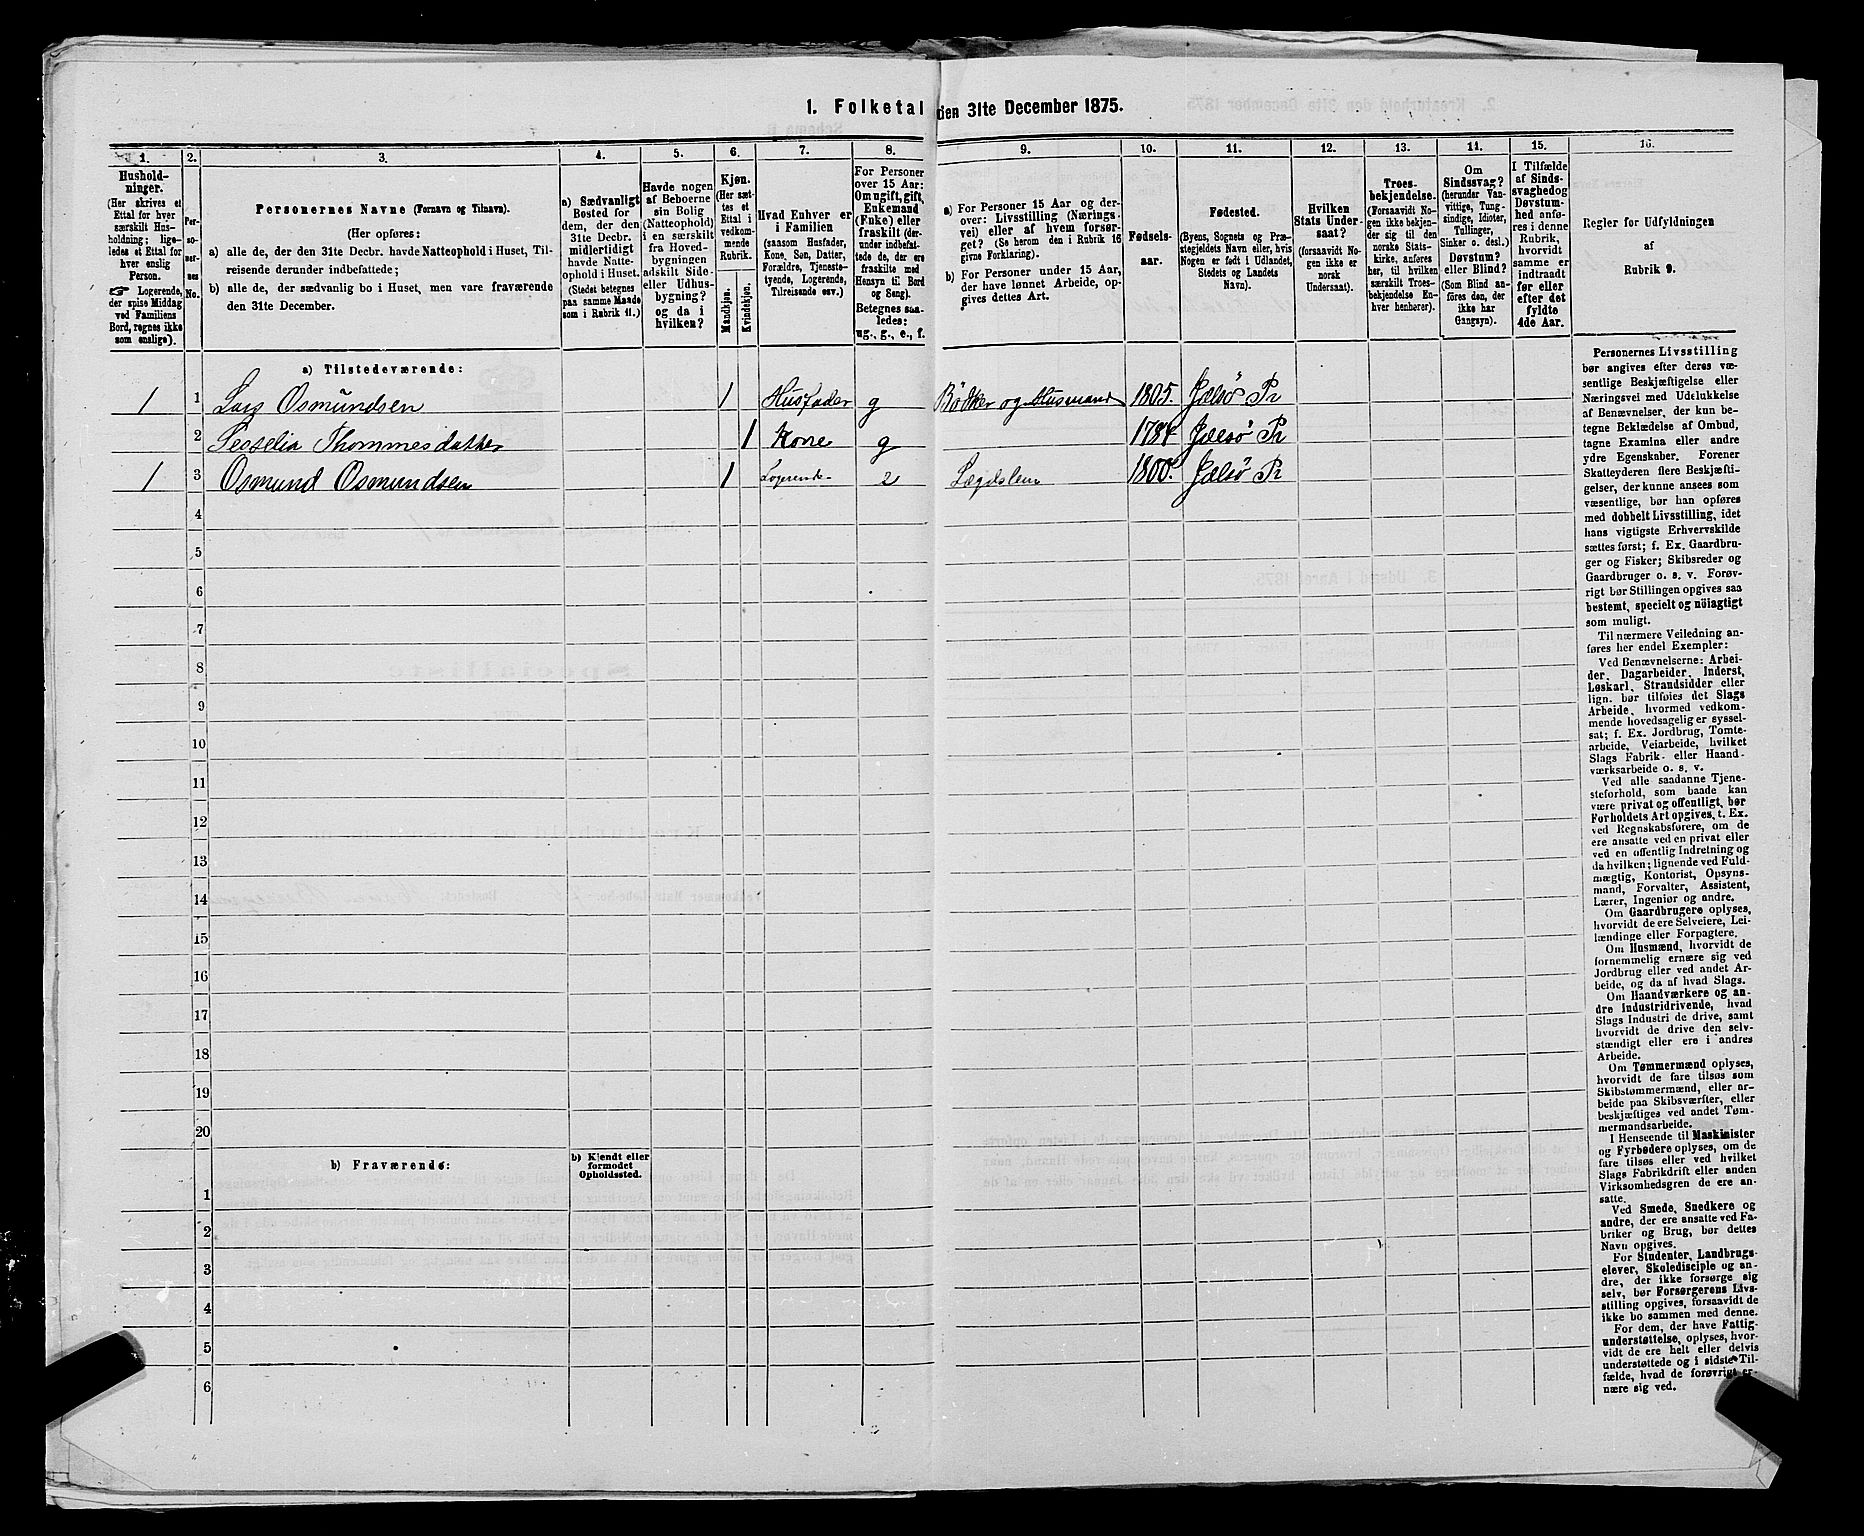 1. Folketal den 31te December 1875.
1. 2. 3. 4. 5. 6. 7. 8. 9. 10. 11. 12. 13. 14. 15. 16.
Hushold-
ninger.
(Her skrives et
Ettal for hver
særskilt Hus-
holdning; lige-
ledes et Ettal for
hver enslig
Person.
☞ Logerende,
der spise Middag
ved Familiens
Bord, regnes ikke
som enslige).
Per-
so-
ner-
nes
No.
Personernes Navne (Fornavn og Tilnavn).
(Her opføres:
a) alle de, der den 31te Decbr. havde Natteophold i Huset, Til-
reisende derunder indbefattede;
b) alle de, der sædvanlig bo i Huset, men vare fraværende
den 31te December.
a) Sædvanligt
Bosted for
dem, der den
31te Decbr.
midlertidigt
havde Natte-
ophold i Huset.
(Stedet betegnes
paa samme Maade
som i Rubrik 11.)
Havde nogen
af Beboerne
sin Bolig
(Natteophold)
i en særskilt
fra Hoved-
bygningen
adskilt Side-
eller Udhus-
bygning?
og da i
hvilken?
Kjøn.
(Her sæt-
tes et
Ettal i
vedkom-
mende
Rubrik.
Mandkjøn.
Kvindekjøn.
Hvad Enhver er
i Familien
(saasom Husfader,
Kone, Søn, Datter,
Forældre, Tjeneste-
tyende, Logerende,
Tilreisende osv.)
For Personer
over 15 Aar:
Om ugift, gift,
Enkemand
(Enke) eller
fraskilt (der-
under indbefat-
tede de, der ere
fraskilte med
Hensyn til Bord
og Seng).
Betegnes saa-
ledes:
ug., g., e., f.
a) For Personer 15 Aar og der-
over: Livsstilling (Nærings-
vei) eller af hvem forsør-
get? (Se herom den i Rubrik 16
givne Forklaring).
b) For Personer under 15 Aar,
der have lønnet Arbeide, op-
gives dettes Art.
Fødsels-
aar.
Fødested.
(Byens, Sognets og Præ-
stegjeldets Navn eller, hvis
Nogen er født i Udlandet,
Stedets og Landets
Navn).
Hvilken
Stats Under-
saat?
(forsaavidt No-
gen ikke er
norsk
Undersaat).
Troes-
bekjendelse.
(Forsaavidt No-
gen ikke bekjen-
der sig til den
norske Stats-
kirke, anføres
her, til hvilken
særskilt Troes-
bekjendelse En-
hver henhører).
Om
Sindssvag?
(herunder Van-
vittige, Tung-
sindige, Idioter,
Tullinger,
Sinker o. desl.)
Døvstum?
eller Blind?
(Som Blind an-
føres den, der
ikke har
Gangsyn).
I Tilfælde
af Sinds-
svaghed og
Døvstum-
hed anfø-
res i denne
Rubrik,
hvorvidt
samme er
indtraadt
før eller
efter det
fyldte
4de Aar.
Regler for Udfyldningen
af
Rubrik 9.
a) Tilstedeværende:
1 1 Lars Osmundsen 1 Husfader g Bödker og Husmand 1805. Jælsö Pr
2 Thommesdatter 1 Kone g Jælsö Pr
1 3 Osmund Osmundsen 1 Logerende Lægdslem 1800. Jælsö Pr
4
5
6
7
8
9
10
11
12
13
14
15
16
17
18
19
20
b) Fraværende:
b) Kjendt eller
formodet
Opholdssted.
1
2
3
4
5
6
Personernes Livsstilling
bør angives efter deres væ-
sentlige Beskjæftigelse eller
Næringsvei med Udelukkelse
af Benævnelser, der kun be-
tegne Beklædelse af Ombud,
tagne Examina eller andre
ydre Egenskaber. Forener
Skatteyderen flere Beskjæfti-
gelser, der kunne ansees som
væsentlige, bør han opføres
med dobbelt Livsstilling, idet
hans vigtigste Erhvervskilde
sættes først; f. Ex. Gaardbru-
ger og Fisker; Skibsreder og
Gaardbruger o. s. v. Forøv-
rigt bør Stillingen opgives saa
bestemt, specielt og nöiagtigt
som muligt.
Til nærmere Veiledning an-
føres her endel Exempler:
Ved Benævnelserne: Arbei-
der, Dagarbeider, Inderst,
Løskarl, Strandsidder eller
lign. bør tilføies det Slags
Arbeide, hvormed vedkom-
mende hovedsagelig er syssel-
sat; f. Ex. Jordbrug, Tomte-
arbeide, Veiarbeide, hvilket
Slags Fabrik- eller Haand-
værksarbeide o. s. v.
Ved alle saadanne Tjene-
steforhold, som baade kan
være privat og offentligt, bør
Forholdets Art opgives, t. Ex.
ved Regnskabsførere, om de
ere ansatte ved en privat eller
ved en offentlig Indretning og
da hvilken; lignende ved Fuld-
mægtig, Kontorist, Opsyns-
mand, Forvalter, Assistent,
Lærer, Ingeniør og andre.
Om Gaardbrugere oplyses,
hvorvidt de ere Selveiere, Lei-
lændinge eller Forpagtere.
Om Husmænd, hvorvidt de
fornemmelig ernære sig ved
Jordbrug eller ved andet Ar-
beide, og da af hvad Slags.
Om Haandværkere og an-
dre Industridrivende, hvad
Slags Industri de drive, samt
hvorvidt de drive den selv-
stændigt eller ere i andres
Arbeide.
Om Tømmermænd oplyses,
hvorvidt de fare tilsøs som
Skibstømmermænd, eller ar-
beide paa Skibsværfter, eller
beskjæftiges ved andet Tøm-
mermandsarbeide.
I Henseende til Maskinister
og Fyrbødere oplyses, om de
fare tilsøs eller ved hvilket
Slags Fabrikdrift eller anden
Virksomhedsgren de ere an-
satte.
Ved Smede, Snedkere og
andre, der ere ansatte ved Fa-
briker og Brug, bør dettes
Navn opgives.
For Studenter, Landbrugs-
elever, Skoledisciple og an-
dre, der ikke forsørge sig
selv, bør Forsørgerens Livs-
stilling opgives, forsaavidt de
ikke bo sammen med denne.
For dem, der have Fattig-
understøttelse, oplyses, hvor-
vidt de ere helt eller delvis
understøttede og i sidste Til-
fælde, hvad de forøvrigt er-
nære sig ved.